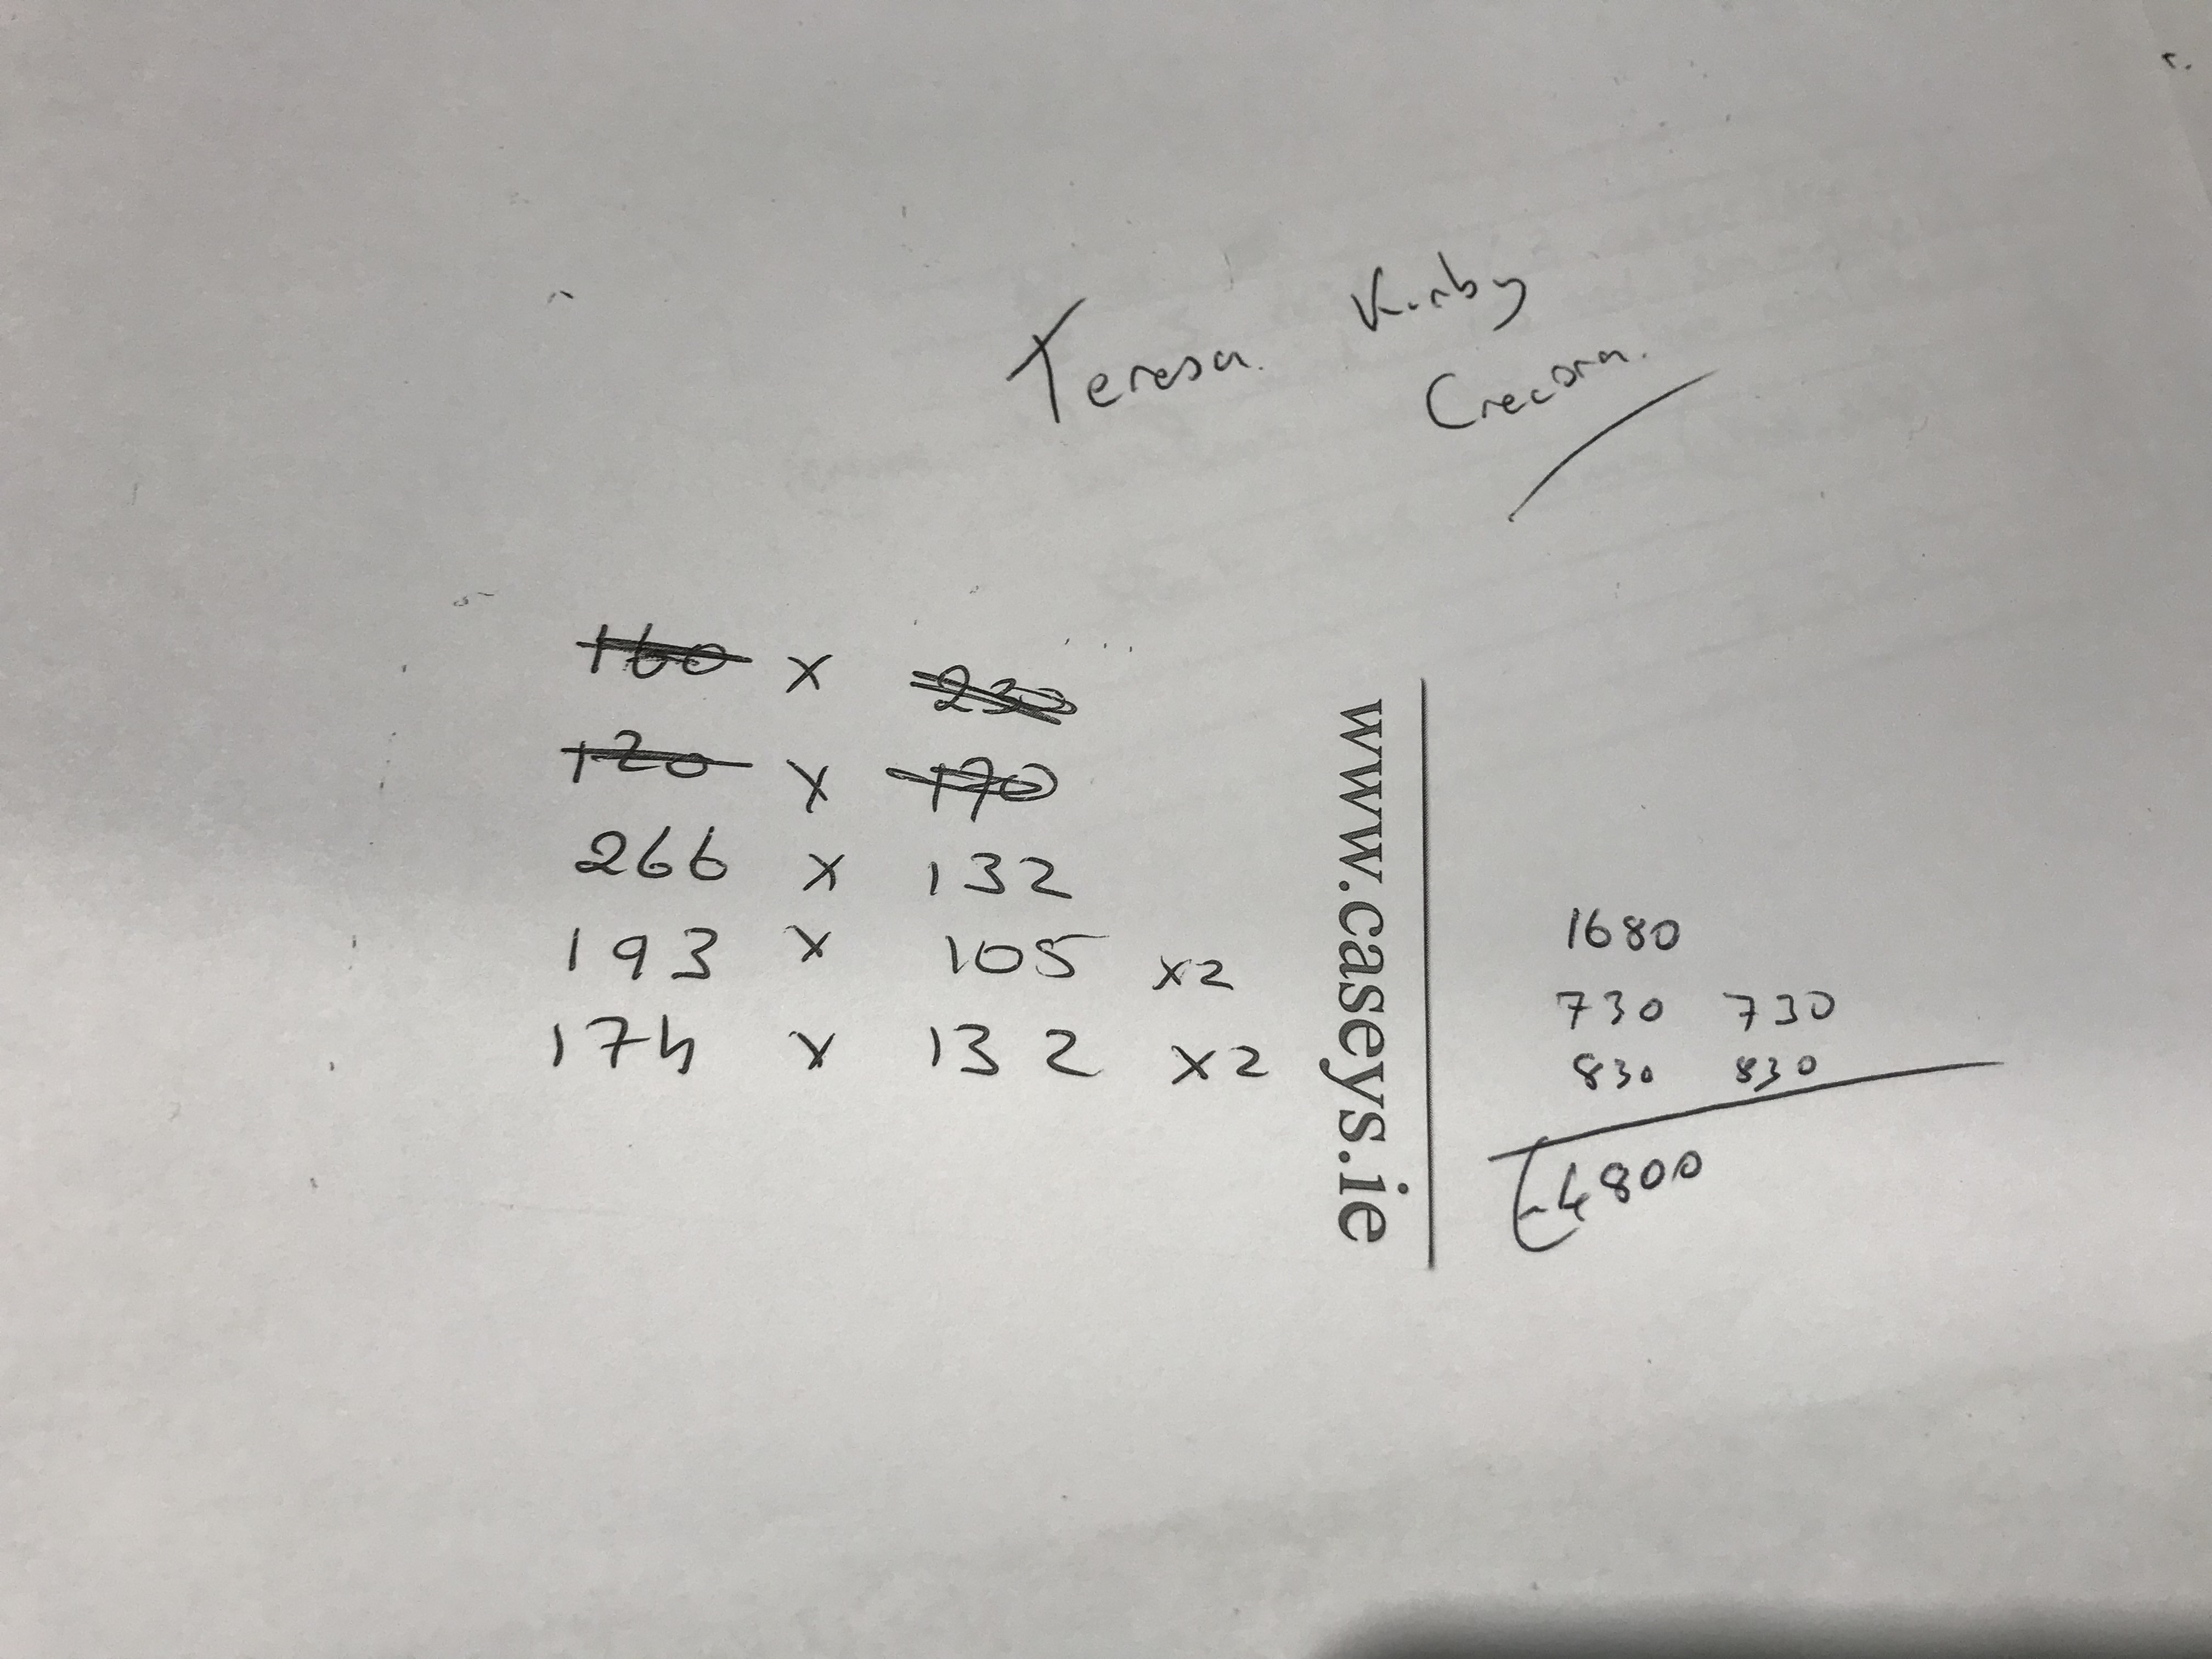 Teresa. Kirby
Crecora.
160 x 230
120 x 170
266 x 132
193 x 105 x2
174 x 132 x2
www.caseys.ie
1680
730 730
830 830
€4800